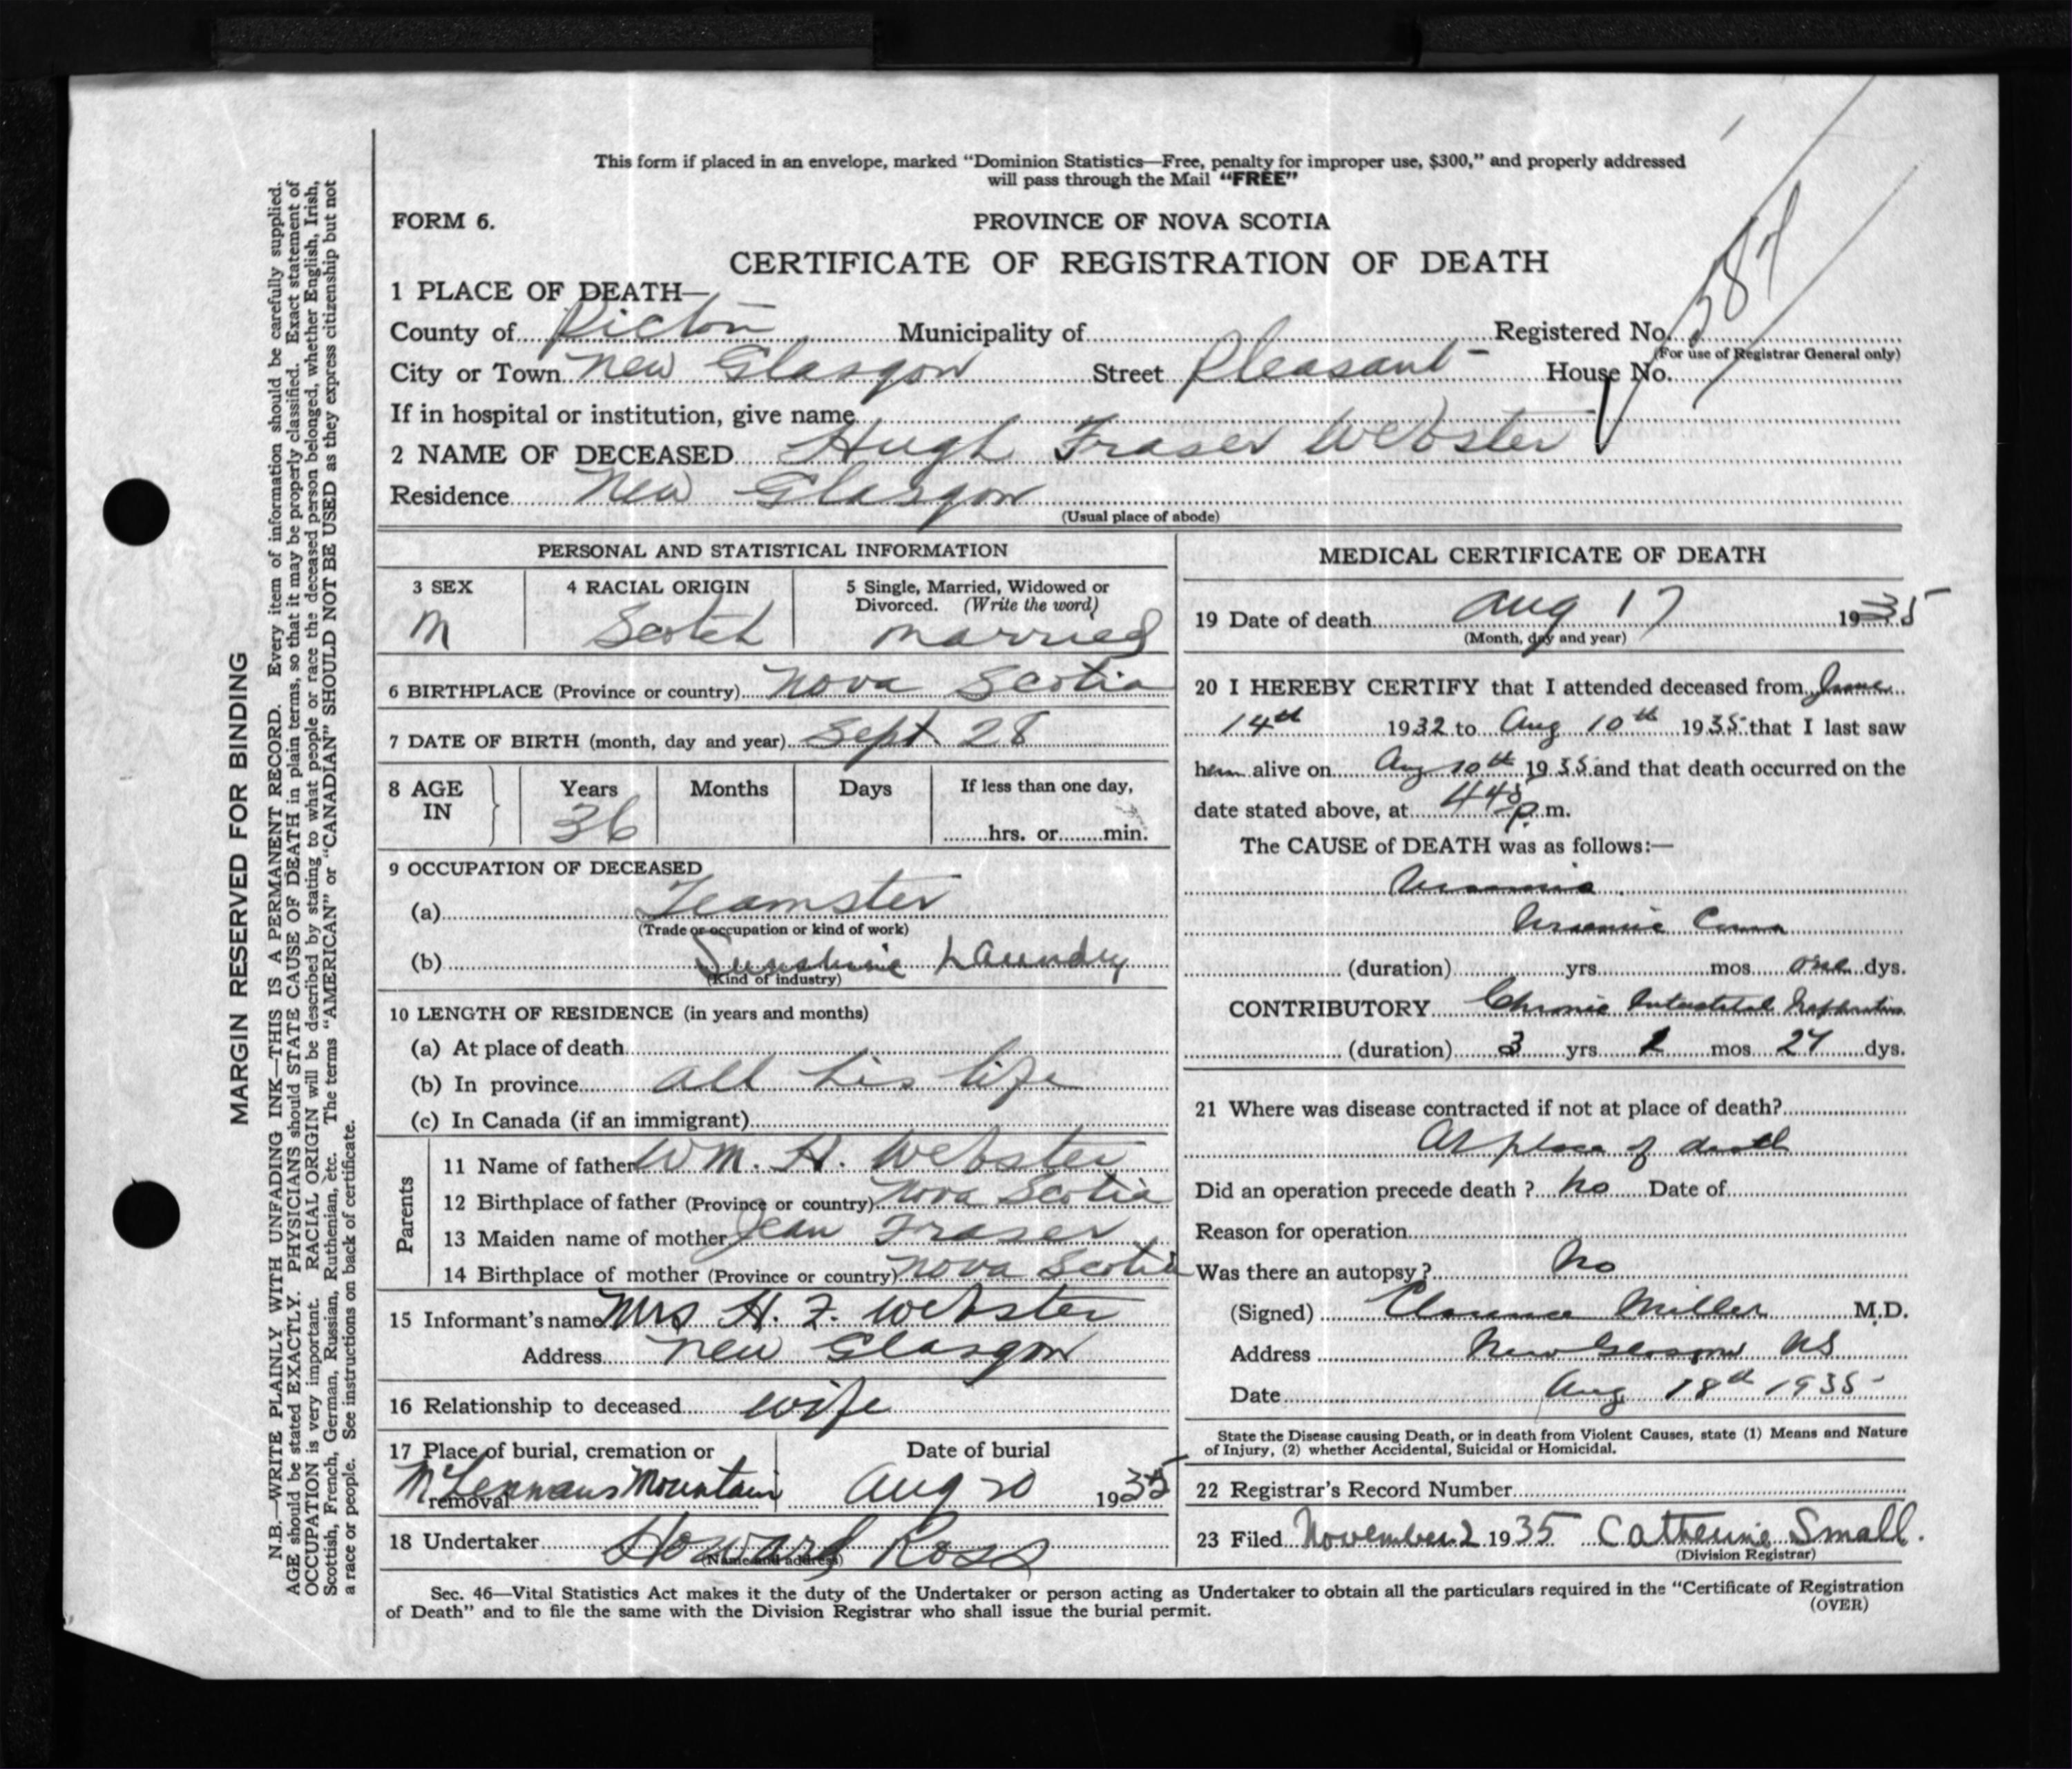 This form if placed in an envelope, marked “Dominion Statistics—Free, penalty for improper use, $300,” and properly addressed
will pass through the Mail “FREE”
FORM 6.
PROVINCE OF NOVA SCOTIA
CERTIFICATE OF REGISTRATION OF DEATH
1 PLACE OF DEATH—
County of Pictou Municipality of Registered No.
(For use of Registrar General only)
City or Town New Glasgow Street Pleasant House No.
If in hospital or institution, give name
2 NAME OF DECEASED Hugh Fraser Webster
Residence New Glasgow
(Usual place of abode)
PERSONAL AND STATISTICAL INFORMATION
3 SEX 4 RACIAL ORIGIN 5 Single, Married, Widowed or
Divorced. (Write the word)
M Scotch Married
6 BIRTHPLACE (Province or country) Nova Scotia
7 DATE OF BIRTH (month, day and year) Sept 28
8 AGE IN Years Months Days If less than one day,
36 hrs. or min.
9 OCCUPATION OF DECEASED
(a) Teamster
(Trade or occupation or kind of work)
(b) Sunshine Laundry
(Kind of industry)
10 LENGTH OF RESIDENCE (in years and months)
(a) At place of death
(b) In province all his life
(c) In Canada (if an immigrant)
Parents
11 Name of father Wm. H. Webster
12 Birthplace of father (Province or country) Nova Scotia
13 Maiden name of mother Jean Fraser
14 Birthplace of mother (Province or country) Nova Scotia
15 Informant's name Mrs H. F. Webster
Address New Glasgow
16 Relationship to deceased wife
17 Place of burial, cremation or Date of burial
removal McLennans Mountain Aug 20 1935
18 Undertaker Howard Ross
(Name and address)
MEDICAL CERTIFICATE OF DEATH
19 Date of death Aug 17 1935
(Month, day and year)
20 I HEREBY CERTIFY that I attended deceased from June
14th 1932 to Aug 10th 1935 that I last saw
him alive on Aug 10th 1935 and that death occurred on the
date stated above, at p.m.
The CAUSE of DEATH was as follows:—
Uraemia
Uraemic Coma
(duration) yrs. mos one dys.
CONTRIBUTORY Chronic Interstitial Nephritis
(duration) 3 yrs 2 mos 27 dys.
21 Where was disease contracted if not at place of death?
At place of death
Did an operation precede death ? No Date of
Reason for operation
Was there an autopsy? No
(Signed) Clarence Miller M.D.
Address New Glasgow NS
Date Aug 18th 1935
State the Disease causing Death, or in death from Violent Causes, state (1) Means and Nature
of Injury, (2) whether Accidental, Suicidal or Homicidal.
22 Registrar's Record Number
23 Filed November 2 1935 Catherine Small.
(Division Registrar)
Sec. 46—Vital Statistics Act makes it the duty of the Undertaker or person acting as Undertaker to obtain all the particulars required in the “Certificate of Registration
of Death” and to file the same with the Division Registrar who shall issue the burial permit.
(OVER)
MARGIN RESERVED FOR BINDING
N.B.—WRITE PLAINLY WITH UNFADING INK—THIS IS A PERMANENT RECORD. Every item of information should be carefully supplied.
AGE should be stated EXACTLY. PHYSICIANS should STATE CAUSE OF DEATH in plain terms, so that it may be properly classified. Exact statement of
OCCUPATION is very important. RACIAL ORIGIN will be described by stating to what people or race the deceased person belonged, whether English, Irish,
Scottish, French, German, Russian, Ruthenian, etc. The terms “AMERICAN” or “CANADIAN” SHOULD NOT BE USED as they express citizenship but not
a race or people. See instructions on back of certificate.